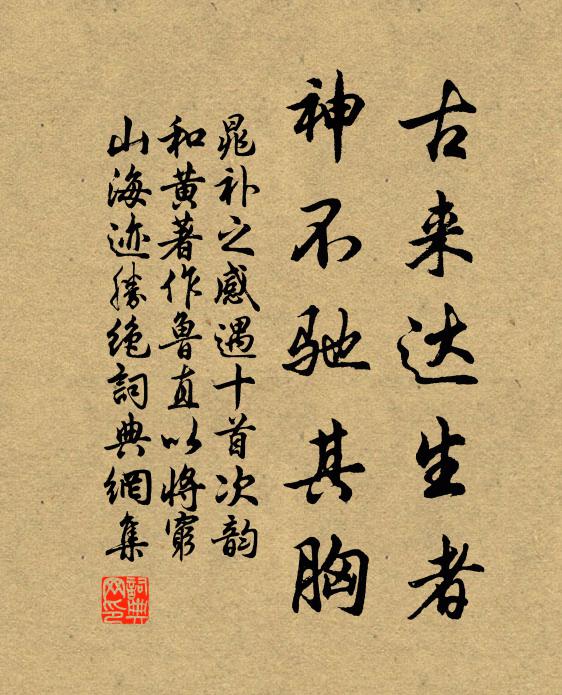 古来达生者
神不驰其胸
晁补之感遇十首次韵
和黄著作鲁直以将穷
山海迹勝绝詞典網集
詞典
网印